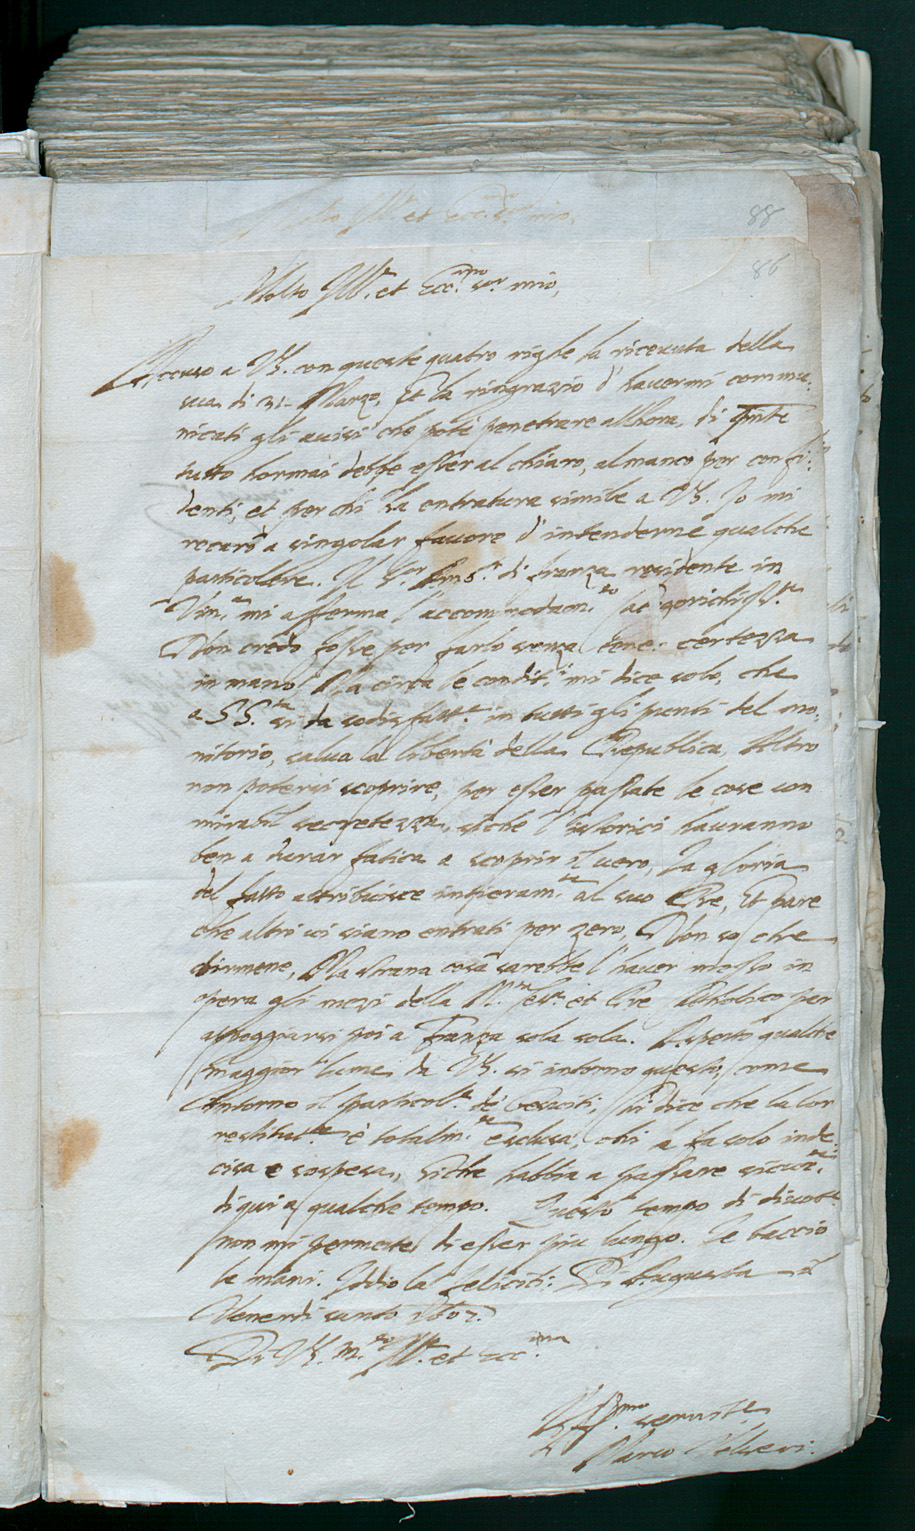 88
86
Molto Ill.re et Ecc.mo s.or mio,
Accuso a VS. con queste quatro righe la ricevuta della
sua di 31. Marzo, et la ringrazio d'havermi commu:
nicati gli avisi che potè penetrare allhora, di pnte
tutto hormai debbe esser al chiaro, almanco per confi:
denti, et per chi ha entratura simile a VS. Io mi
recarò a singolar favore d'intenderne qualche
particolare. Il S.or Amb.r di franza residente in
Vin.a mi afferma l'accommodam.to
Non credo fosse per farlo senza tener certezza
in mano. Ma circa le condit.i mi dice solo, che
a SS.tà si da sodisfatt.e in tutti gli punti del mo:
nitorio, salva la libertà della Republica, Altro
non potersi scoprire, per esser passate le cose con
mirabil secretezza, siché l'historici havranno
ben a durar fatica a scoprir il vero, La gloria
del fatto attribuisce intieram.te al suo Re, Et pare
che altri vi siano entrati per zero, Non so che
dirmene, Ma strana cosa sarebbe l'haver messo in
opera gli mezi della et Re Catholico per
appoggiarsi poi a Franza sola sola. Aspetto qualche
maggior lume da VS. si intorno questo, come
intorno il particol.e de' Gesuiti, Chi dice che la lor
restitut.ne è totalm.te esclusa, chi la fa solo inde:
cisa e sospesa, siche habbia a passare
di qui a qualche tempo. Questo tempo di divot.e
non mi permette di esser piu lungo. Le baccio
le mani. Iddio la feliciti. Di Augusta a
Venerdi santo 1607.
Di VS. M.to Ill.re et Ecc.ma
Aff.mo servit.e
Marco Velseri.